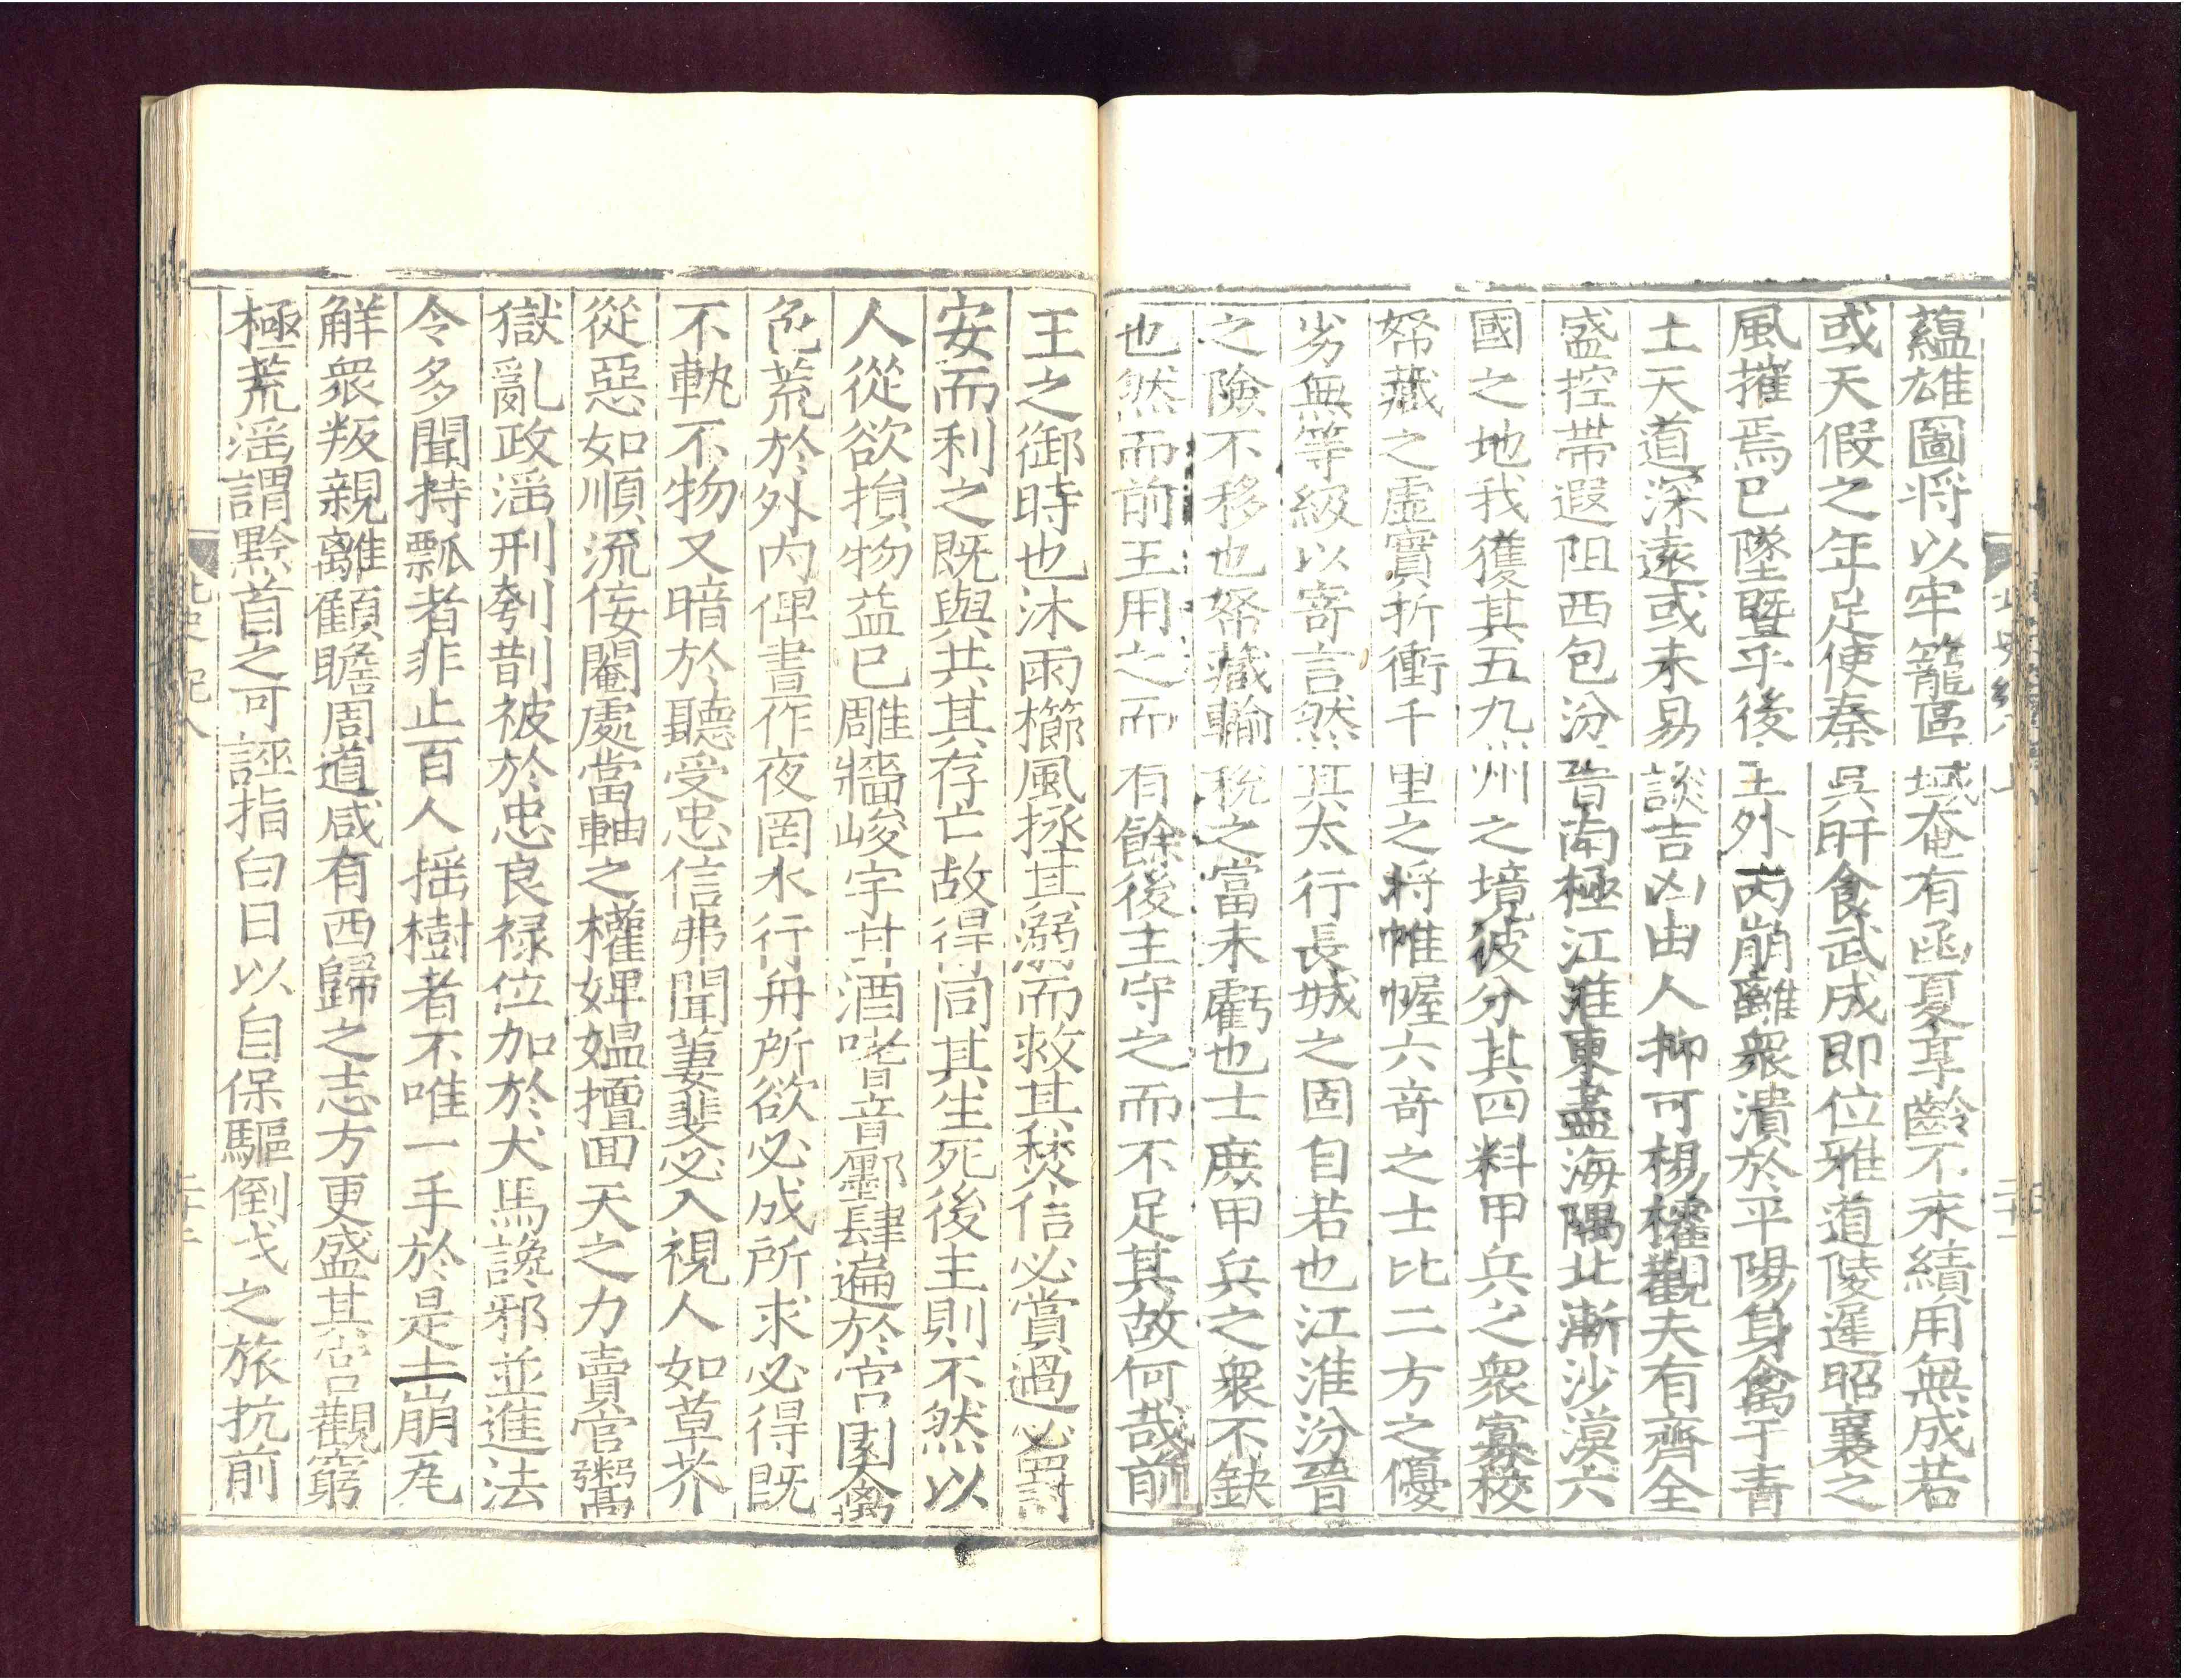 蘊雄圖将以牢籠區域奄有函夏享齡不永績用無成若
或天假之年足使秦吳旰食武成即位雅道陵遲昭襄之
風摧焉已墜曁乎後主外内崩離衆潰於平陽身禽于青
土天道深遠或未易談吉凶由人抑可楊㩁觀夫有齊全
盛控帶遐阻西包汾晉南極江淮東盡海隅北漸沙漠六
國之地我獲其五九州之境彼分其四料甲兵之衆寡校
帑藏之虛實折衝千里之将帷幄六奇之士比二方之優
劣無等級以寄言然其太行長城之固自若也江淮汾晉
之險不移也帑藏輸稅之當未虧也士庶甲兵之衆不缺
也然而前王用之而有餘後主守之而不足其故何哉前
王之御時也沐雨櫛風拯其溺而救其焚信必賞過必罰
安而利之既與共其存亡故得同其生死後主則不然以
人從欲損物益已雕牆峻宇甘酒嗜音鄽肆遍於宮園禽
色荒於外内俾晝作夜罔水行舟所欲必成所求必得既
不軌不物又暗於聽受忠信弗聞萋斐必入視人如草芥
從惡如順流佞閹處當軸之權婢媼擅囬天之力賣官鬻
獄亂政滛刑刳剒被於忠良禄位加於犬馬讒邪並進法
令多聞持瓢者非止百人揺樹者不唯一手於是土崩瓦
解衆叛親離顧瞻周道咸有西歸之志方更盛其宮觀窮
極荒滛謂黔首之可誣指白日以自保驅倒戈之旅抗前